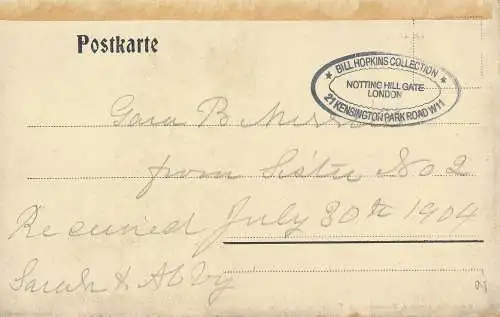 Postkarte
BILL HOPKINS COLLECTION
NOTTING HILL GATE
LONDON
21 KENSINGTON PARK ROAD W11
B
from Sister No 2
Received July 30th 1904
Sarah & Abby